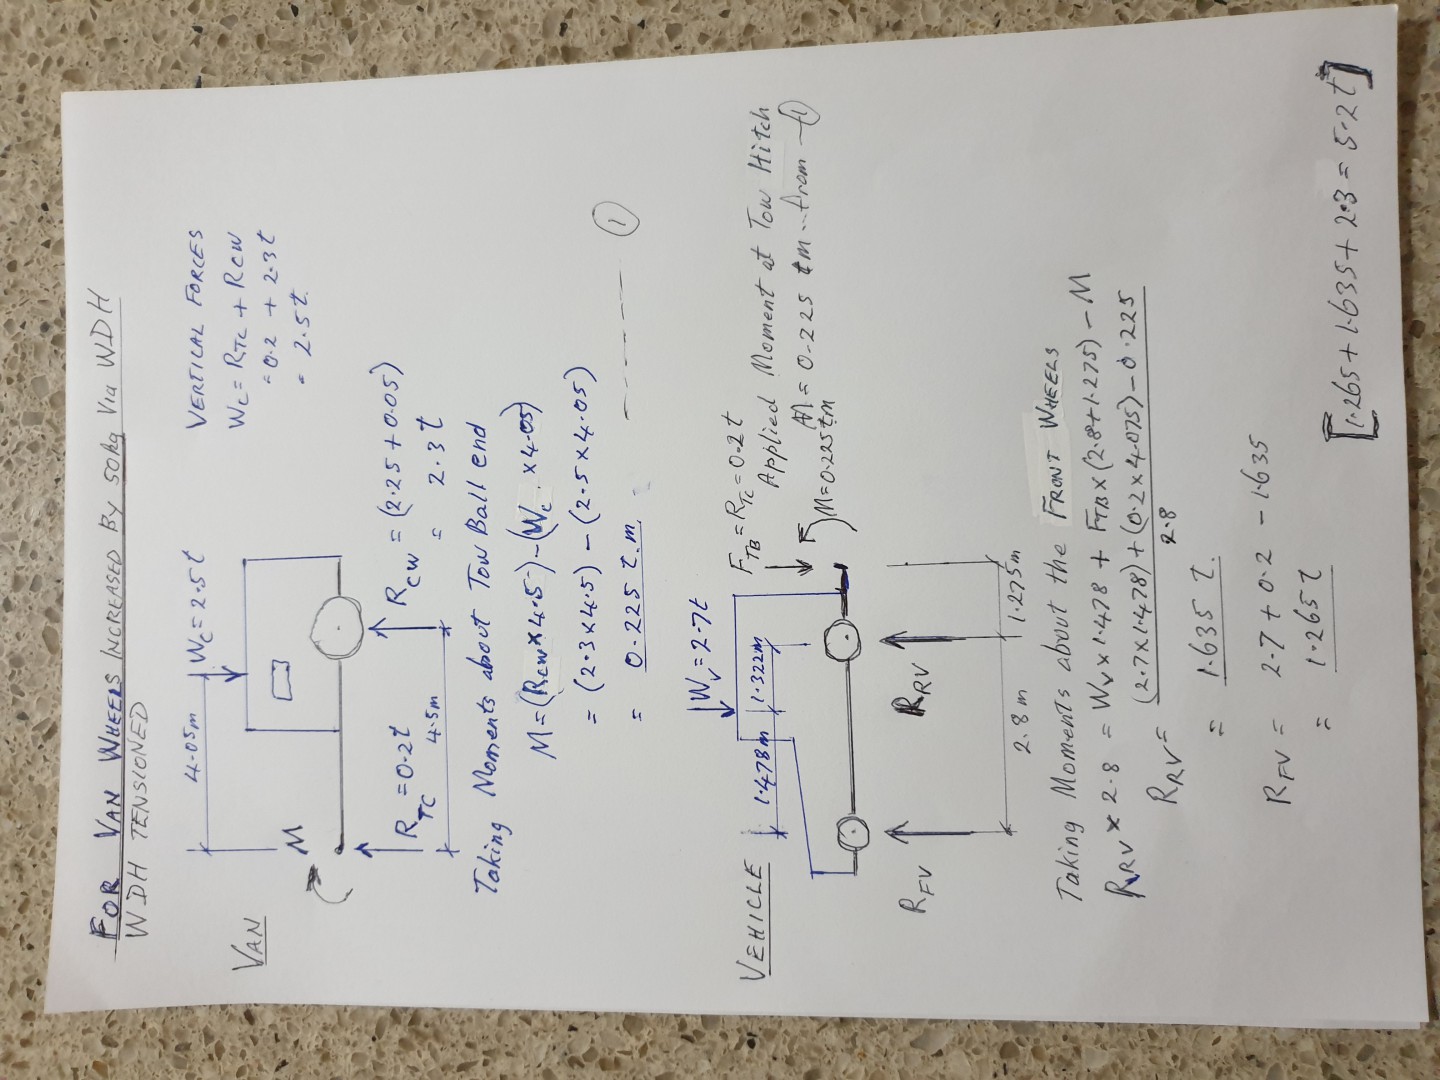 FOR VAN WHEELS INCREASED BY 50kg Via WDH
WDH TENSIONED
VAN
4.05m
Wc = 2.5t
M
RTC = 0.2t
4.5m
RCW = (2.25 + 0.05)
= 2.3t
VERTICAL FORCES
Wc = RTC + RCW
= 0.2 + 2.3t
= 2.5t.
Taking Moments about Tow Ball end
M = (RCW x 4.5) - (Wc x 4.05)
= (2.3 x 4.5) - (2.5 x 4.05)
= 0.225 t.m ------ 1
VEHICLE
Wv = 2.7t
1.478m
1.322m
FTB = RTC = 0.2t
Applied Moment at Tow Hitch
M = 0.225 tm .. from - 1
M = 0.225tm
RFV
RRV
2.8m
1.275m
Taking Moments about the FRONT WHEELS
RRV x 2.8 = Wv x 1.478 + FTB x (2.8 + 1.275) - M
RRV = (2.7 x 1.478) + (0.2 x 4.075) - 0.225
2.8
= 1.635 t.
RFV = 2.7 + 0.2 - 1.635
= 1.265t
[1.265 + 1.635 + 2.3 = 5.2t]